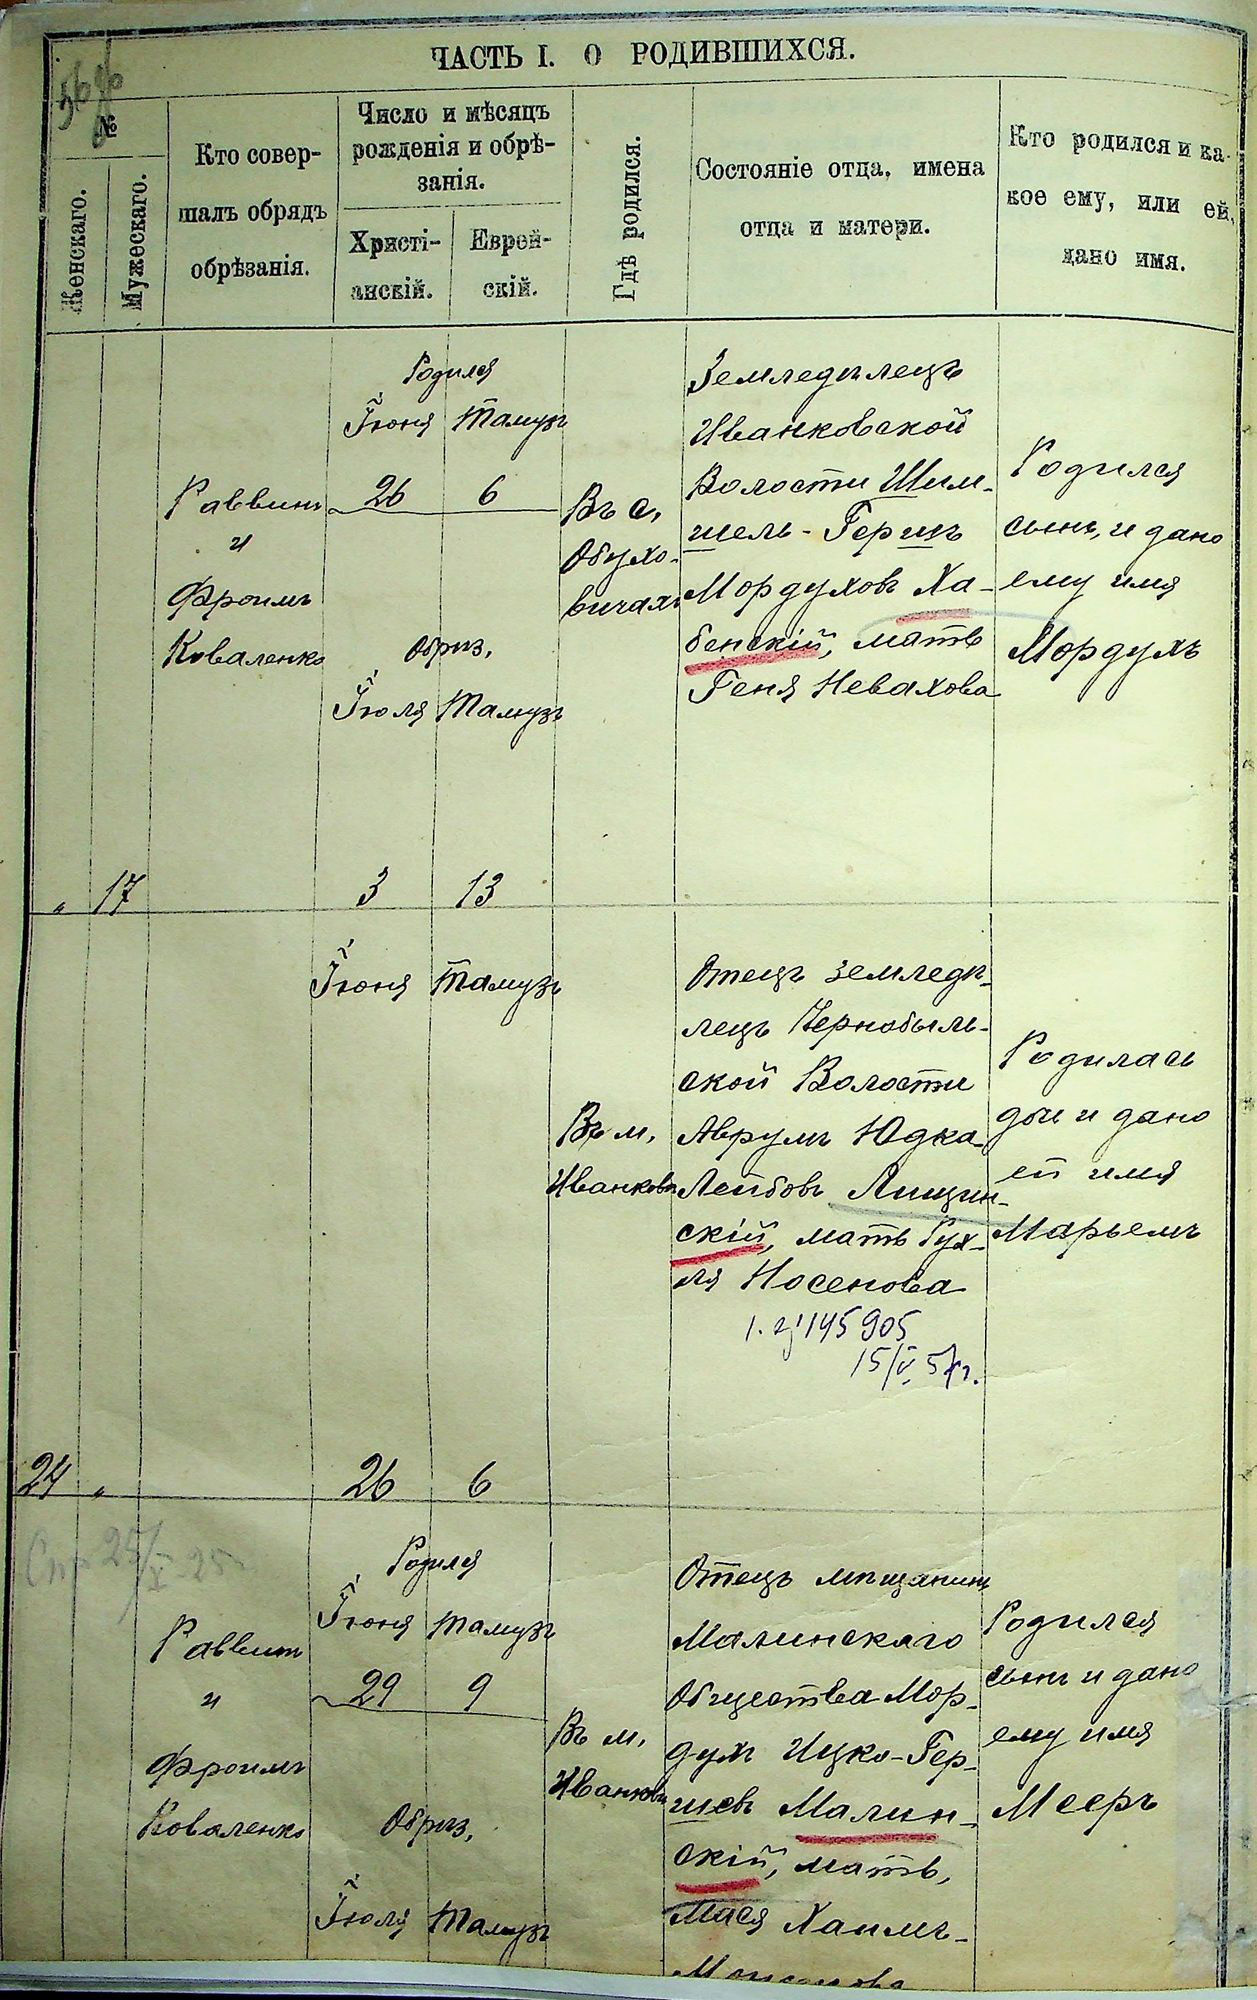 ЧАСТЬ I. О РОДИВШИХСЯ.
№
Женскаго.
Мужескаго.
Кто совер-
шалъ обрядъ
обрѣзанія.
Число и мѣсяцъ
рожденія и обрѣ-
занія.
Христі-
анскій.
Еврей-
скій.
Гдѣ родился.
Состояніе отца, имена
отца и матери.
Кто родился и ка-
кое ему, или ей,
дано имя.
„ 17
Раввинъ
и
Фроимъ
Коваленко
Родился
Іюня Тамузъ
26 6
Обрѣз.
Іюля Тамузъ
3 13
Въ с.
Обухо-
вичахъ
Земледѣлецъ
Иванковской
Волости Шим-
шель-Гершъ
Мордуховъ Ха-
бенскій, мать
Геня Невахова
Родился
сынъ, и дано
ему имя
Мордухъ
24 „
Іюня Тамузъ
26 6
Въ м.
Иванковѣ
Отецъ земледѣ-
лецъ Чернобыль-
ской Волости
Аврумъ Юдка-
Лейбовъ Лищин-
скій, мать Рух-
ля Носенова
145905
15/V 57г.
Родилась
дочь и дано
ей имя
Марьемъ
Раввинъ
и
Фроимъ
Коваленко
Родился
Іюня Тамузъ
29 9
Обрѣз.
Іюля Тамузъ
Въ м.
Иванковѣ
Отецъ мѣщанинъ
Малинскаго
Общества Мор-
духъ Ицко-Гер-
шевъ Малин-
скій, мать,
Мася Хаимъ-
Родился
сынъ и дано
ему имя
Мееръ